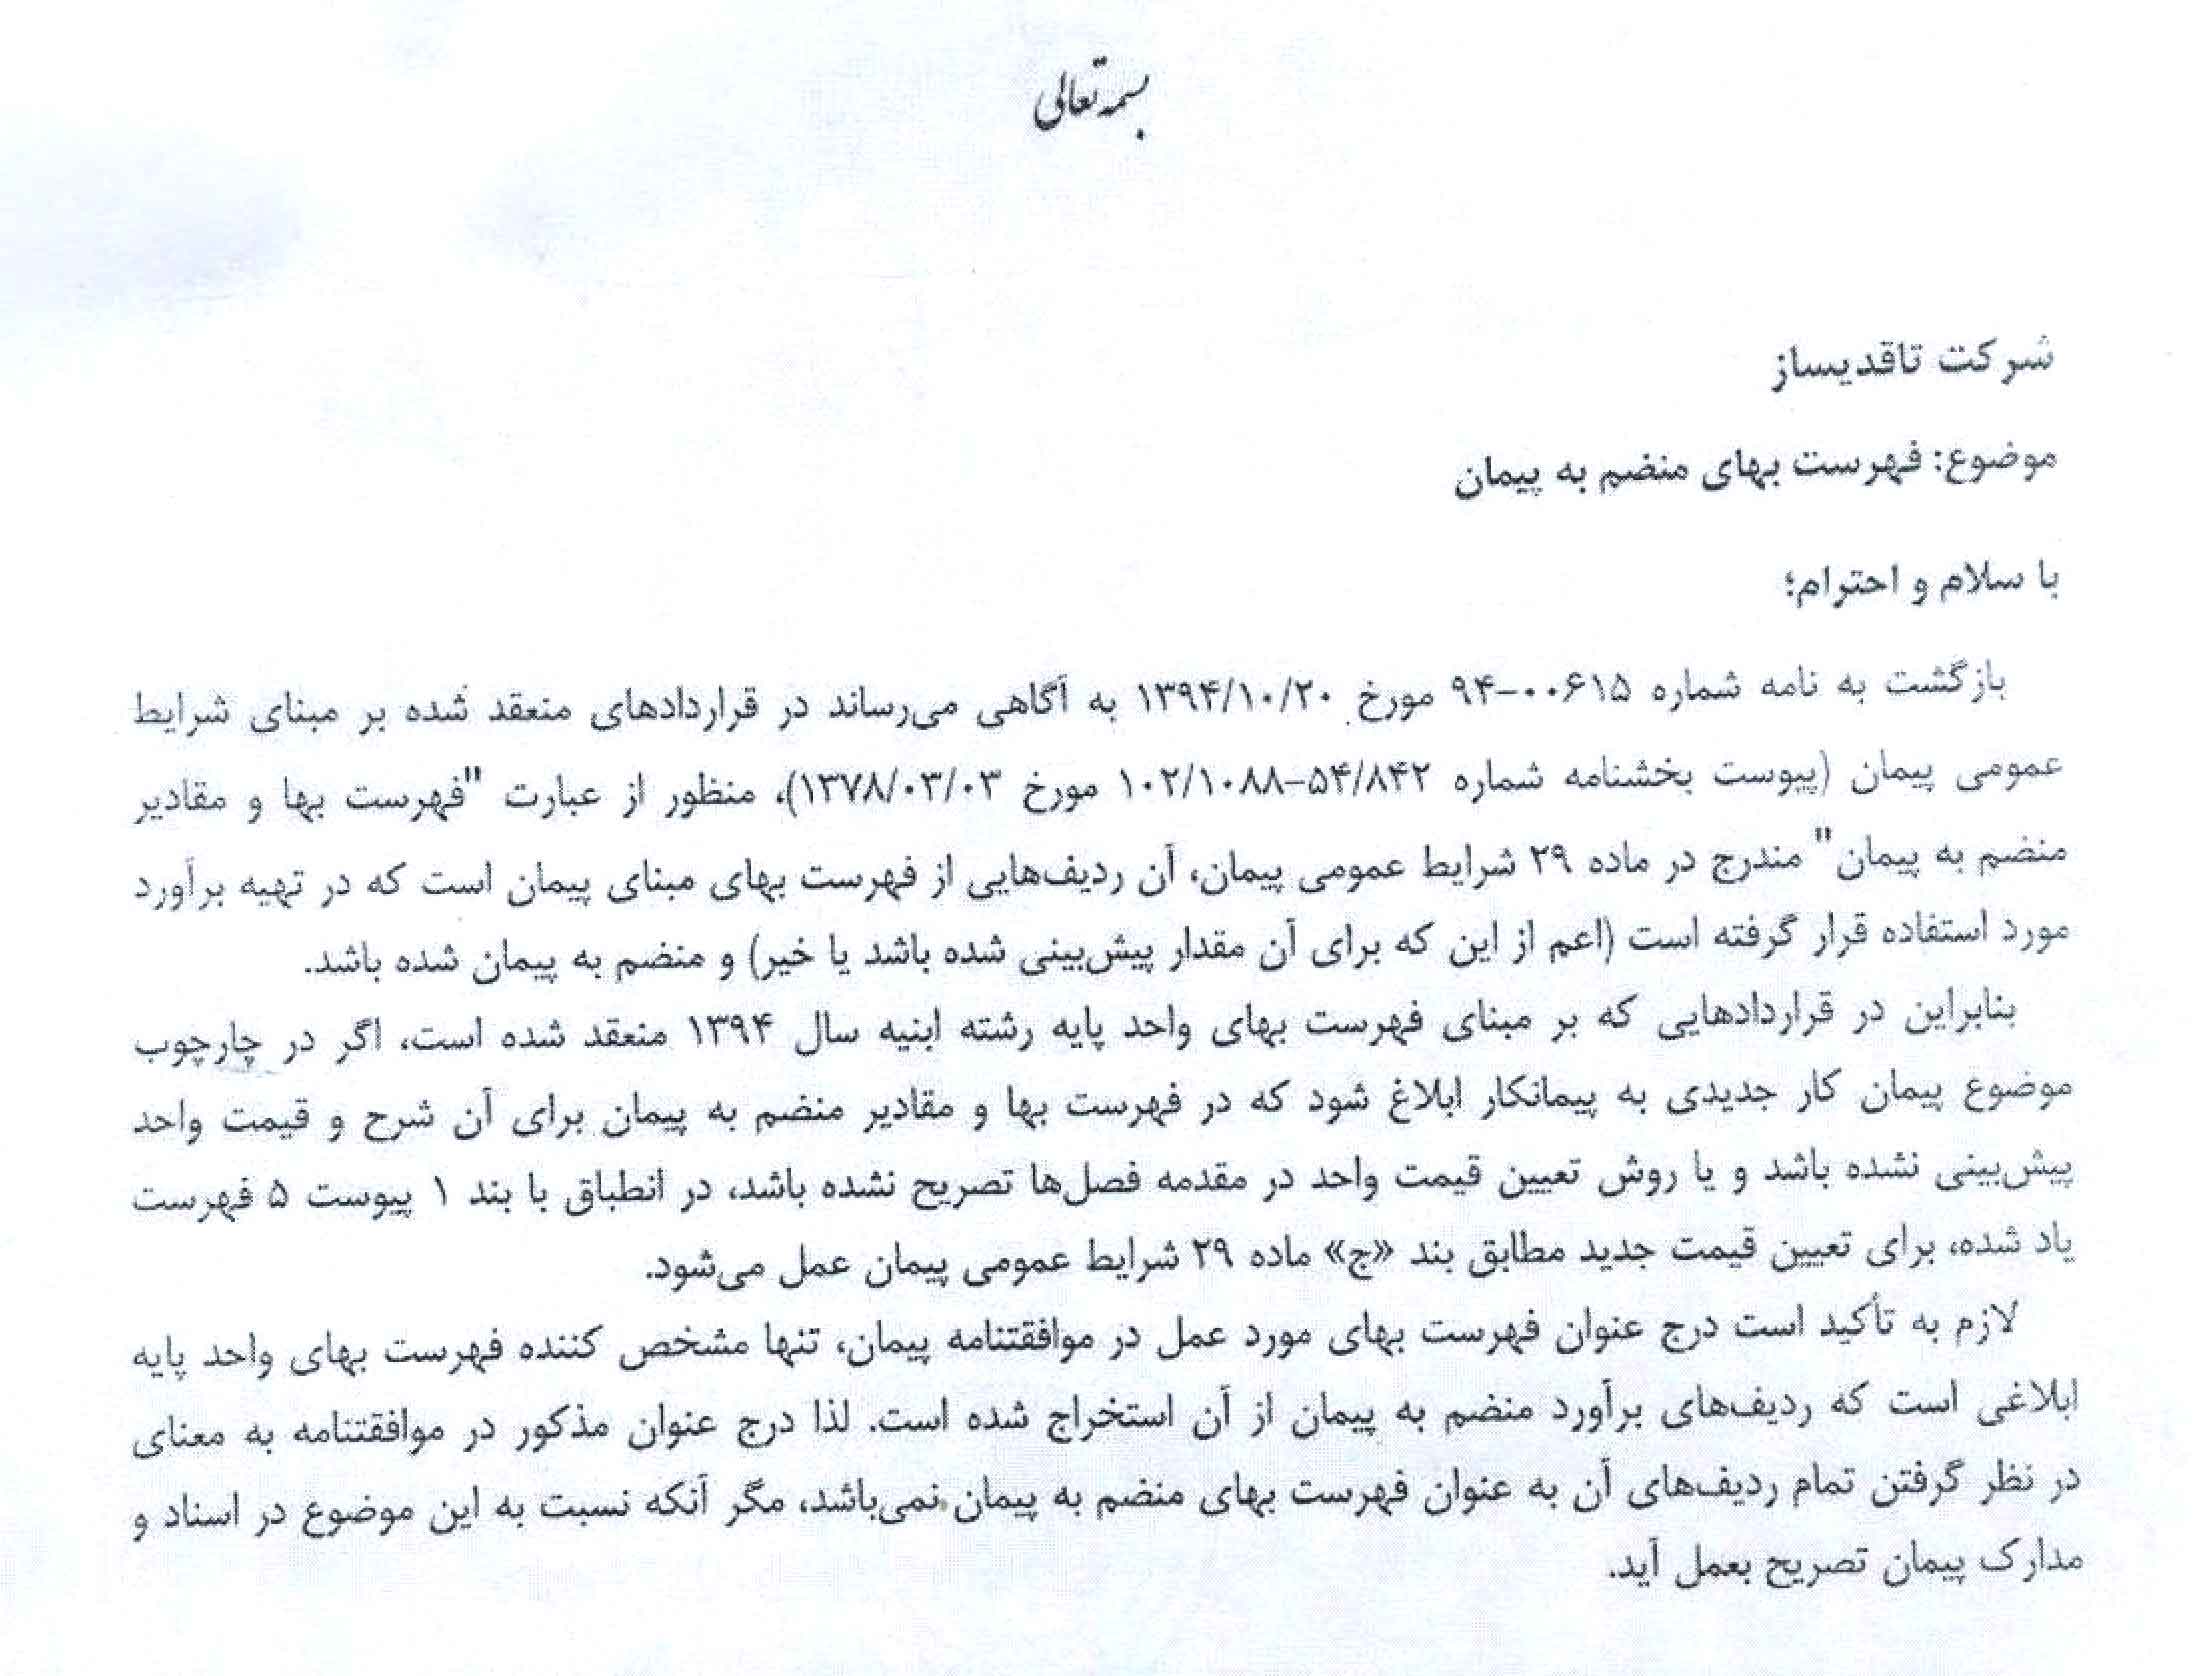 بسمه تعالی
شرکت تاقدیساز
موضوع: فهرست بهای منضم به پیمان
با سلام و احترام؛
بازگشت به نامه شماره ۰۰۶۱۵-۹۴ مورخ ۱۳۹۴/۱۰/۲۰ به آگاهی می‌رساند در قراردادهای منعقد شده بر مبنای شرایط
عمومی پیمان (پیوست بخشنامه شماره ۵۴/۸۴۲-۱۰۲/۱۰۸۸ مورخ ۱۳۷۸/۰۳/۰۳)، منظور از عبارت "فهرست بها و مقادیر
منضم به پیمان" مندرج در ماده ۲۹ شرایط عمومی پیمان، آن ردیف‌هایی از فهرست بهای مبنای پیمان است که در تهیه برآورد
مورد استفاده قرار گرفته است (اعم از این که برای آن مقدار پیش‌بینی شده باشد یا خیر) و منضم به پیمان شده باشد.
بنابراین در قراردادهایی که بر مبنای فهرست بهای واحد پایه رشته ابنیه سال ۱۳۹۴ منعقد شده است، اگر در چارچوب
موضوع پیمان کار جدیدی به پیمانکار ابلاغ شود که در فهرست بها و مقادیر منضم به پیمان برای آن شرح و قیمت واحد
پیش‌بینی نشده باشد و یا روش تعیین قیمت واحد در مقدمه فصل‌ها تصریح نشده باشد، در انطباق با بند ۱ پیوست ۵ فهرست
یاد شده، برای تعیین قیمت جدید مطابق بند «ج» ماده ۲۹ شرایط عمومی پیمان عمل می‌شود.
لازم به تأکید است درج عنوان فهرست بهای مورد عمل در موافقتنامه پیمان، تنها مشخص کننده فهرست بهای واحد پایه
ابلاغی است که ردیف‌های برآورد منضم به پیمان از آن استخراج شده است. لذا درج عنوان مذکور در موافقتنامه به معنای
در نظر گرفتن تمام ردیف‌های آن به عنوان فهرست بهای منضم به پیمان نمی‌باشد، مگر آنکه نسبت به این موضوع در اسناد و
مدارک پیمان تصریح بعمل آید.